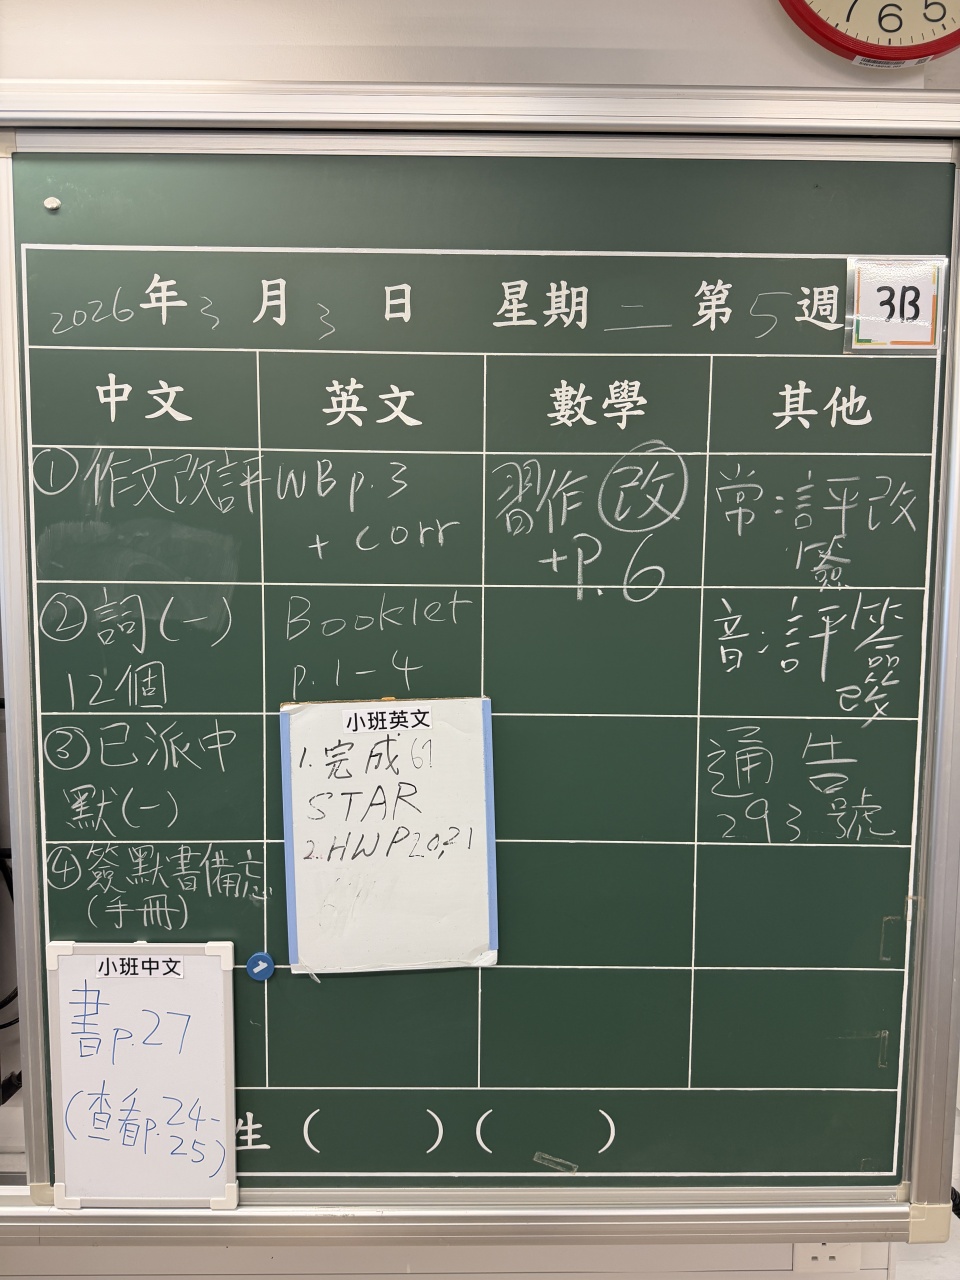 7 6 5
2026年3月3日 星期二 第5週 3B
中文 英文 數學 其他
①作文改評
WB p.3
+ corr
習作改
+P.6
常:評改
簽
②詞(一)
12個
Booklet
p.1-4
音:評簽
改
③已派中
默(一)
通告
293號
④簽默書備忘
(手冊)
小班英文
1.完成
STAR
2.HWP20,21
小班中文
書p.27
(查看p.24-
25)
生( )( )